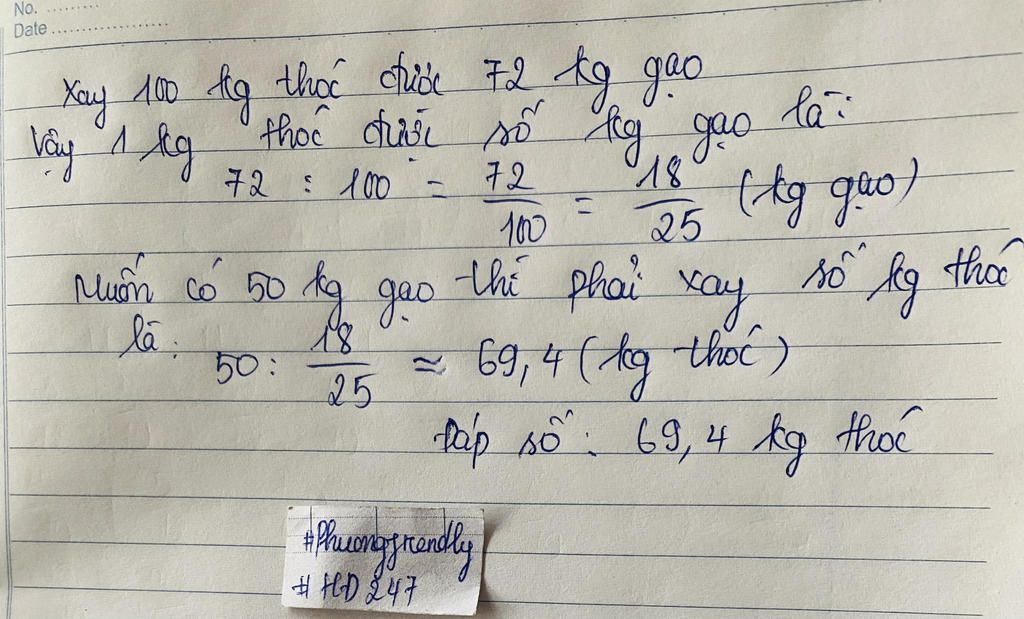 No. ..........
Date ....................
Xay 100 kg thóc được 72 kg gạo
Vậy 1 kg thóc được số kg gạo là:
72 : 100 = 72/100 = 18/25 (kg gạo)
Muốn có 50 kg gạo thì phải xay số kg thóc
là:
50 : 18/25 ≈ 69,4 (kg thóc)
Đáp số: 69,4 kg thóc
#Phuongfrendly
#HD247